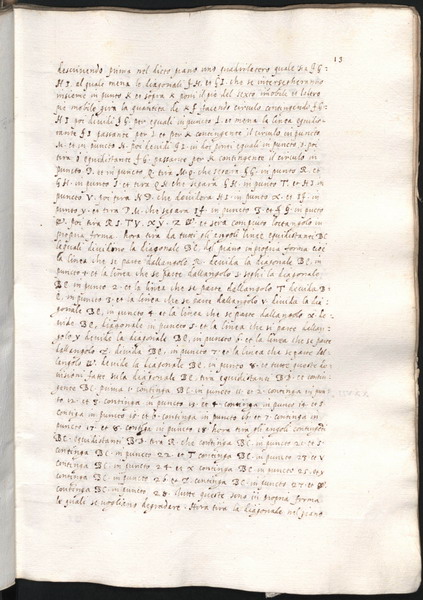 13
descrivendo prima nel ditto piano uno quadrilatero quale sia F G
H I. al quale mena le diagonali F H. et G I. che se intersegheranno
insieme in punto K et sopra K poni il pie del sexto imobile et lo altro
pie mobile gira la quantita de K F facendo circulo contingendo F G
H I poi dividi F G per equali in puncto L. et mena la linea equidi-
stante F I passante per L. et per K contingente il circulo in puncto
M. et in puncto N. poi devidi F I in doi parti equali in puncto O. poi
tira O equidistante F G. passante per K contingente il circulo in
puncto P. et in puncto Q. tira M Q. che segara F G. in punto R. et
G H. in punto S. et tira Q N che segara H. in punto T. et H I in
puncto V. poi tira N P. che devidera H I. in punto X. et I F. in
punto y. et tira P M. che segara I F in puncto Z et F G in puncto
poi tira R S T V. X y. Z et sera compiuto locangolo in
propria forma. hora tira da tutti gli angoli linee equidistanti B C
le quali dividono la diagonale B C. del piano in propria forma cioè
la linea che se parte dallangolo R. devida la diagonale B C. in
puncto 1. et la linea che se parte dallangolo S. seghi la diagonale
B C. in punto 2. et la linea che se parte dallangolo T devida B
C. in puncto 3. et la linea che se parte dallangolo V. devida la dia-
gonale B C. in punto 4. et la linea che se parte dallangolo X. de-
vide B C. diagonale in puncto 5. et la linea che si parte dallan-
golo y devida la diagonale B C. in puncto 6. et la linea che se parte
dallangolo Z. devida B C. in puncto 7. et la linea che se parte dal-
langolo devida la diagonale B C. in punto 8. et tutte queste de-
visioni fatte sula diagonale B C. tira equidistante B D. et contin-
gente B C. prima 1. continga B C. in puncto 11. et 2. continga in pun-
to 12. et 3. continga in puncto 13. et 4. continga in punto 14. et 5
continga in punto 15. et 6. continga in puncto 16. et 7. continga in
puncto 17. et 8. continga in puncto 18 hora tira gli angoli contingenti
B C. equidistanti B D. tira R. che continga B C. in puncto 21. et S.
continga B C. in puncto 22. et T continga B C. in puncto 23. et V
continga B C. in puncto 24. et X continga B C. in puncto 25. et y
continga B C. in puncto 26. et Z. continga B C. in puncto 27. et
continga B C. in puncto 28. tutte queste sono in propria forma
le quali se vogliano degradare. Hora tira la diagonale nel piano